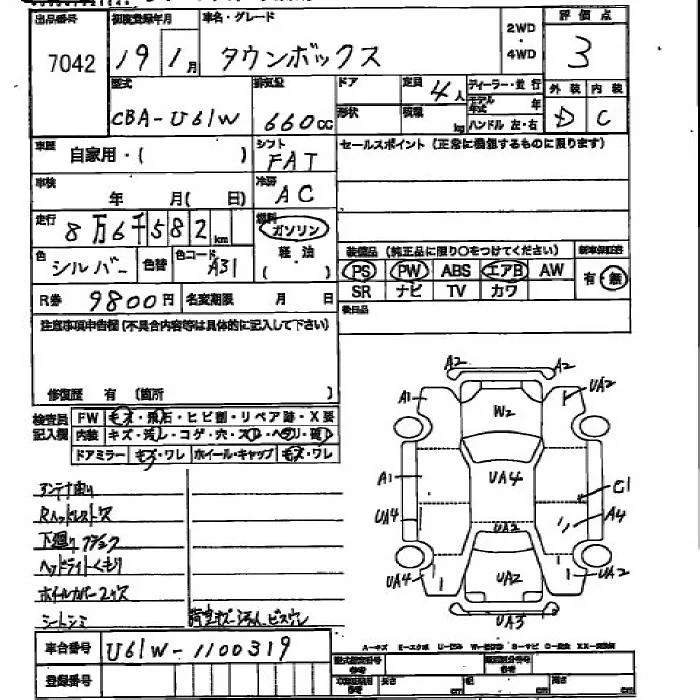 出品番号 初度登録年月 車名・グレード 評価点
7042 19 1月 タウンボックス 2WD ・ 4WD 3
型式 排気量 ドア 定員 4人 ディーラー・並行 外装 内装
CBA-U61W 660cc 形状 積載 kg モデル年式 年 D C
ハンドル 左・右
車歴 自家用・( ) シフト FAT セールスポイント (正常に機能するものに限ります)
車検 年 月( 日) 冷房 AC
走行 8万6千582km 燃料 ガソリン
軽油
( ・ )
色 シルバー 色替 色コード A31
装備品 (純正品に限り○をつけてください) 新車保証書
PS PW ABS エアB AW 有・無
SR ナビ TV カワ
R券 9800円 名変期限 月 日 後日品
注意事項申告欄(不具合内容等は具体的に記入して下さい)
修復歴 有 (箇所 )
検査員記入欄 FW キズ・飛石・ヒビ割・リペア跡・X要
内装 キズ・汚レ・コゲ・穴・スレ・ヘタリ・破レ
ドアミラー キズ・ワレ ホイール・キャップ キズ・ワレ
アンテナ曲り
Rヘッドレスト欠
下廻り
ヘッドライトくもり
ホイルカバー2ケ欠
シートシミ
A2 A2
A1 UA2
W2
A1 UA4 C1
UA4 A4
UA2
UA4 UA2 UA2
UA3
A-キズ E-エクボ U-凹み W-波打ち S-サビ C-腐食 XX-交換済
車台番号 U61W-1100319
登録番号
型式指定番号 参考 類別区分番号 参考
参考 長さ cm 幅 cm 高さ cm